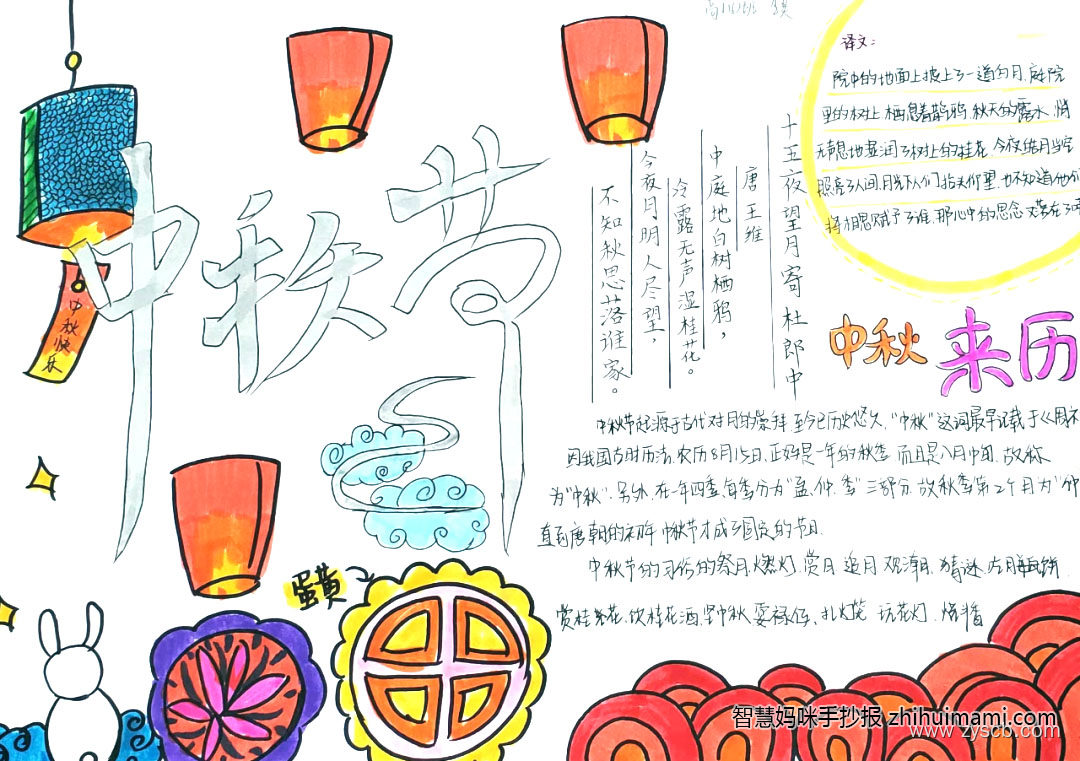 中秋节
中秋快乐
十五夜望月寄杜郎中
唐 王维
中庭地白树栖鸦，
冷露无声湿桂花。
今夜月明人尽望，
不知秋思落谁家。
译文：
院中的地面上披上了一道白月，庭院
里的树上栖息着鹊鸦，秋天的露水，悄
无声息地湿润了树上的桂花，今夜皓月当空
照亮了人间，月光下人们抬头仰望，也不知道他们
将相思赋予了谁，那心中的思念又落在了
中秋来历
中秋节起源于古代对月的崇拜至今已历史悠久，"中秋"这词最早记载于《周
因我国古时历法，农历8月15日，正妈是一年的秋季而且是八月中旬，故称
为"中秋"．另外，在一年四季，每季分为"孟，仲，季"三部分故秋季第2个月为"仲
直到唐朝的初年中秋节才成了固定的节日．
中秋节的习俗的祭月，燃灯，赏月追月观潮，猜谜，吃月饼
赏桂花，饮桂花酒，扎灯笼玩花灯，烧
蛋黄
智慧妈咪手抄报 zhihuimami.com
www.zyscb.com